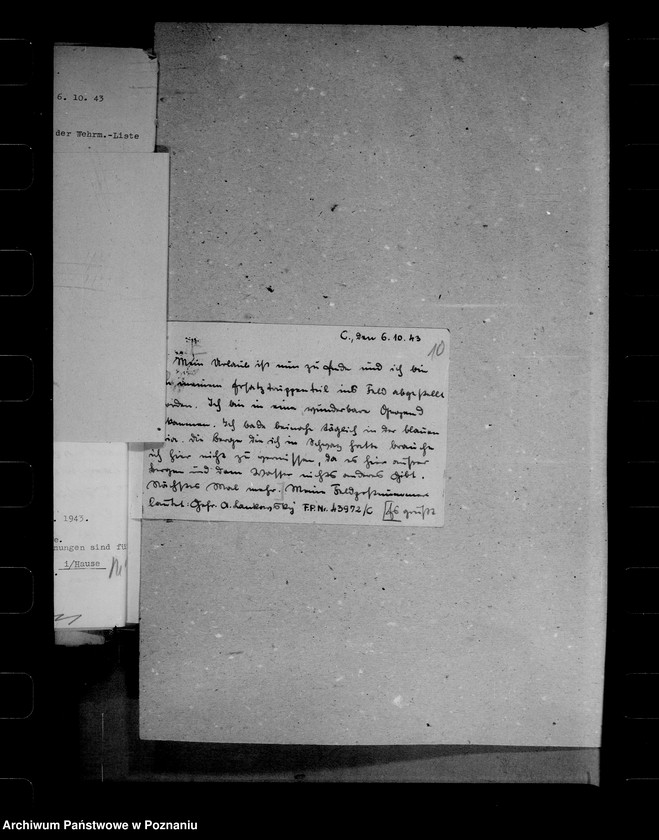 6. 10. 43
der Wehrm.-Liste
C., den 6. 10. 43
10
Mein Urlaub ist nun zu Ende und ich bin
meinem Ersatztruppenteil ins Feld abgestellt
worden. Ich bin in eine wunderbare Gegend
gekommen. Ich bade beinahe täglich in der blauen
die Berge die ich in Schwaz hatte brauche
ich hier nicht zu vermissen, da es hier außer
Bergen und dem Wasser nichts anderes gibt.
Nächstes Mal mehr. Meine Feldpostnummer
lautet: Gefr. A. Lankowsky F.P.Nr. 43972/C Es grüßt
. 1943.
e.
nungen sind fü
i/Hause
Archiwum Państwowe w Poznaniu